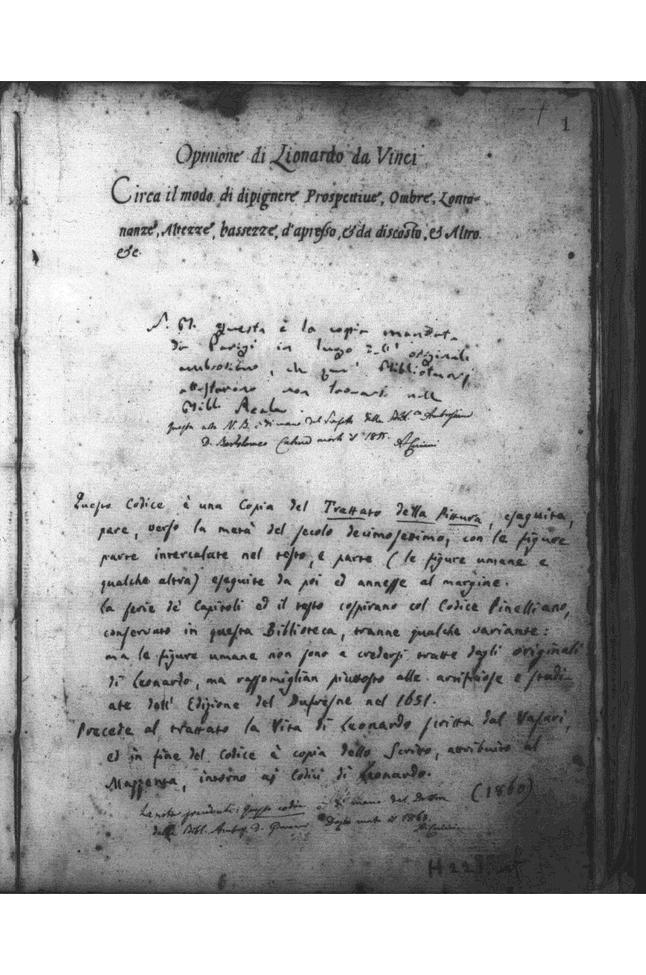 1
Opinione di Lionardo da Vinci
Circa il modo di dipignere Prospettiue, Ombre, Lonta-
nanze, Altezze, bassezze, d'apresso, & da discosto, & Altro.
&c.
questa è la copia mandata
da Parigi in luogo originali
che Bibliotecarj
non
Reale
questa nota N. B. è di mano del della Bibl.ca
D. Bartolomeo morto il 1815.
Questo Codice è una Copia del Trattato della Pittura, eseguita,
pare, verso la metà del secolo decimosettimo, con le figure
parte intercalate nel testo, e parte (le figure umane e
qualche altra) eseguite da poi ed annesse al margine.
La serie de' Capitoli ed il testo cospirano col Codice Pinelliano,
conservato in questa Biblioteca, tranne qualche variante:
ma le figure umane non sono a credersi tratte dagli originali
di Leonardo, ma rassomiglian piuttosto alle artifiziose e studi-
ate dell' Edizione del Dufresne nel 1651.
Precede al trattato la Vita di Leonardo scritta dal Vasari,
ed in fine del Codice è copia dello Scritto, attribuito al
Mazzenta, intorno ai Codici di Leonardo.
(1860)
La nota precedente: Questo codice è di mano del Dottore
della Bibl. Ambros. D. Giovanni Dozio morto il 1860.
H 228